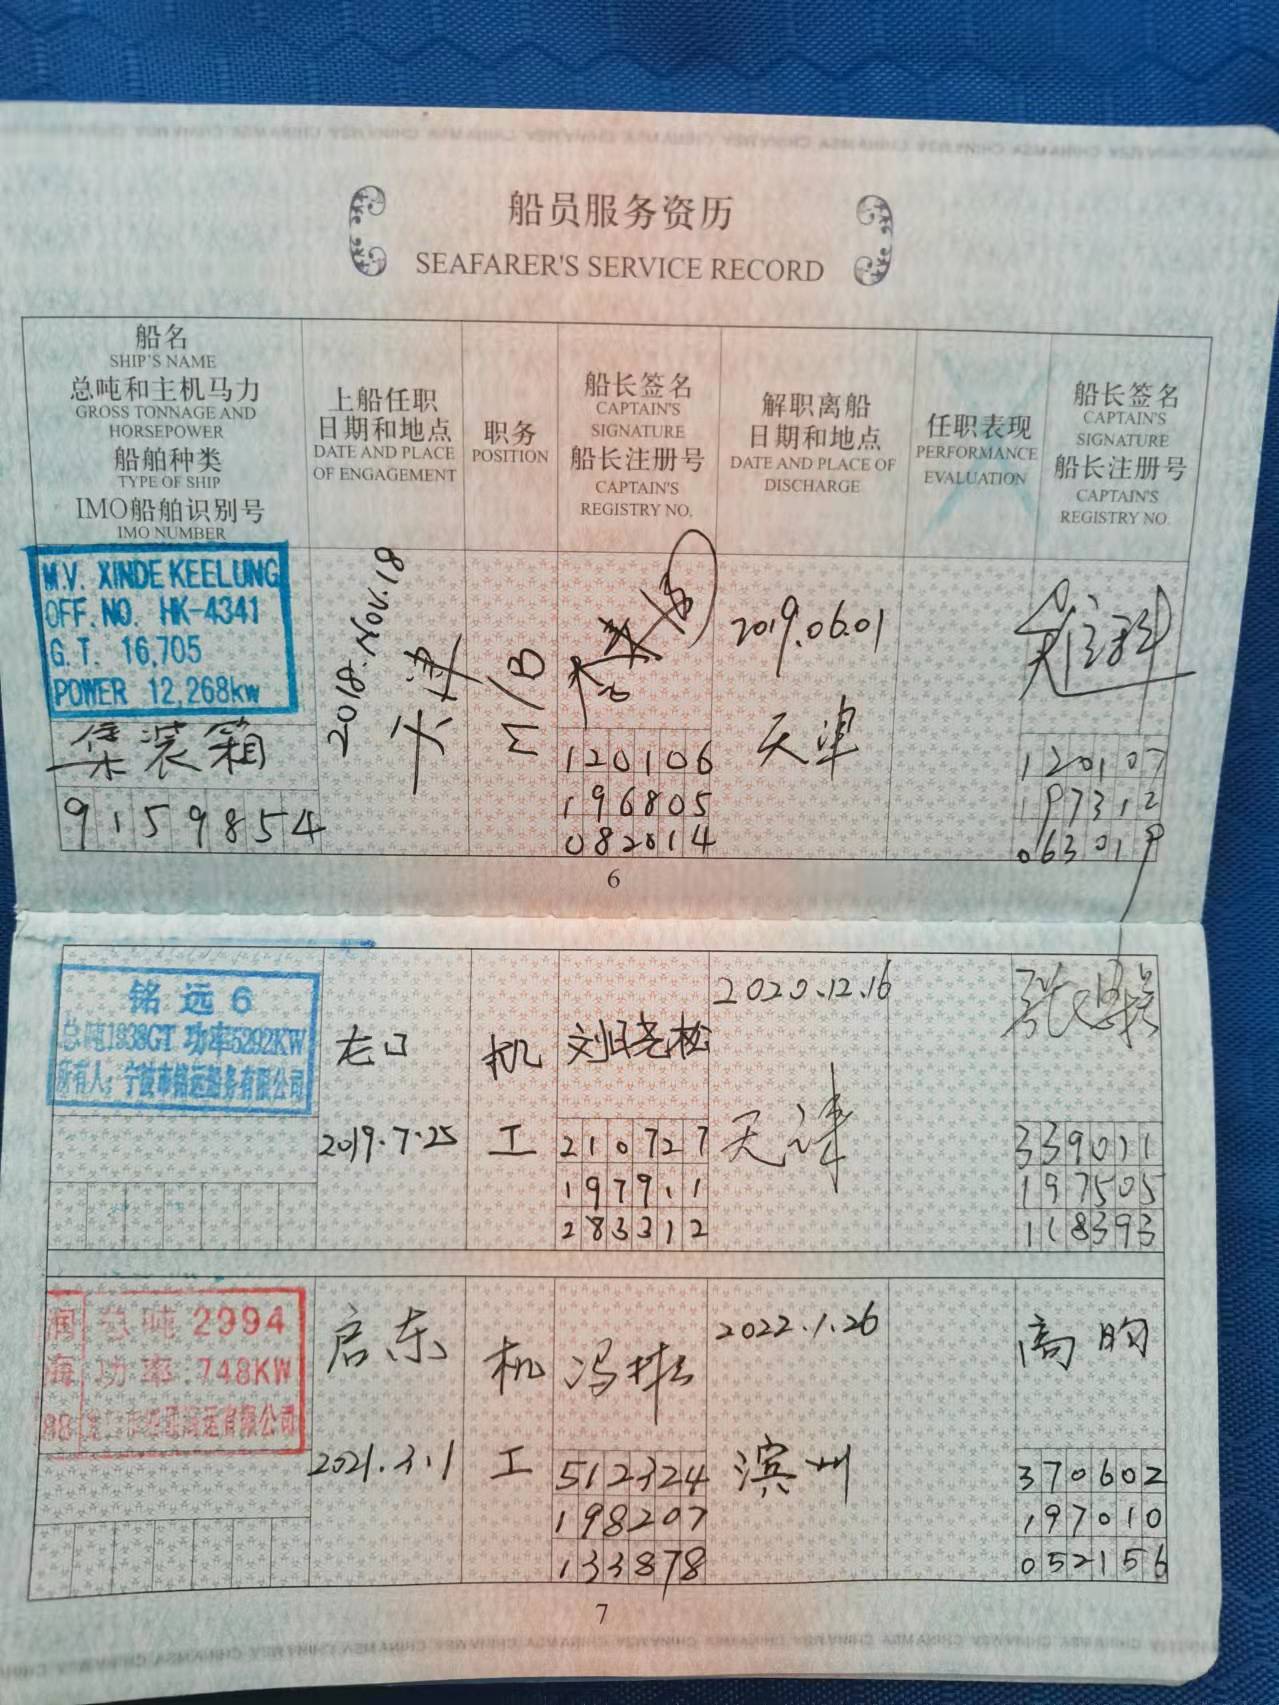 船员服务资历
SEAFARER'S SERVICE RECORD
船名
SHIP'S NAME
总吨和主机马力
GROSS TONNAGE AND
HORSEPOWER
船舶种类
TYPE OF SHIP
IMO船舶识别号
IMO NUMBER
上船任职
日期和地点
DATE AND PLACE
OF ENGAGEMENT
职务
POSITION
船长签名
CAPTAIN'S
SIGNATURE
船长注册号
CAPTAIN'S
REGISTRY NO.
解职离船
日期和地点
DATE AND PLACE OF
DISCHARGE
任职表现
PERFORMANCE
EVALUATION
船长签名
CAPTAIN'S
SIGNATURE
船长注册号
CAPTAIN'S
REGISTRY NO.
M.V. XINDE KEELUNG
OFF. NO. HK-4341
G.T. 16,705
POWER 12,268kw
集装箱
9159854
2018.Nov.18
天津
M/B
120106
196805
082014
2019.06.01
天津
120107
197312
063019
6
铭远6
总吨1838GT 功率5292KW
所有人：宁波市铭远船务有限公司
龙口
2019.7.25
机
工
刘晓松
210727
197911
283312
2020.12.16
天津
339011
197505
118393
润海88
总吨 2994
功率:748KW
海运有限公司
启东
2021.3.1
机
工
冯彬
512324
198207
133878
2022.1.26
滨州
高昀
370602
197010
052156
7